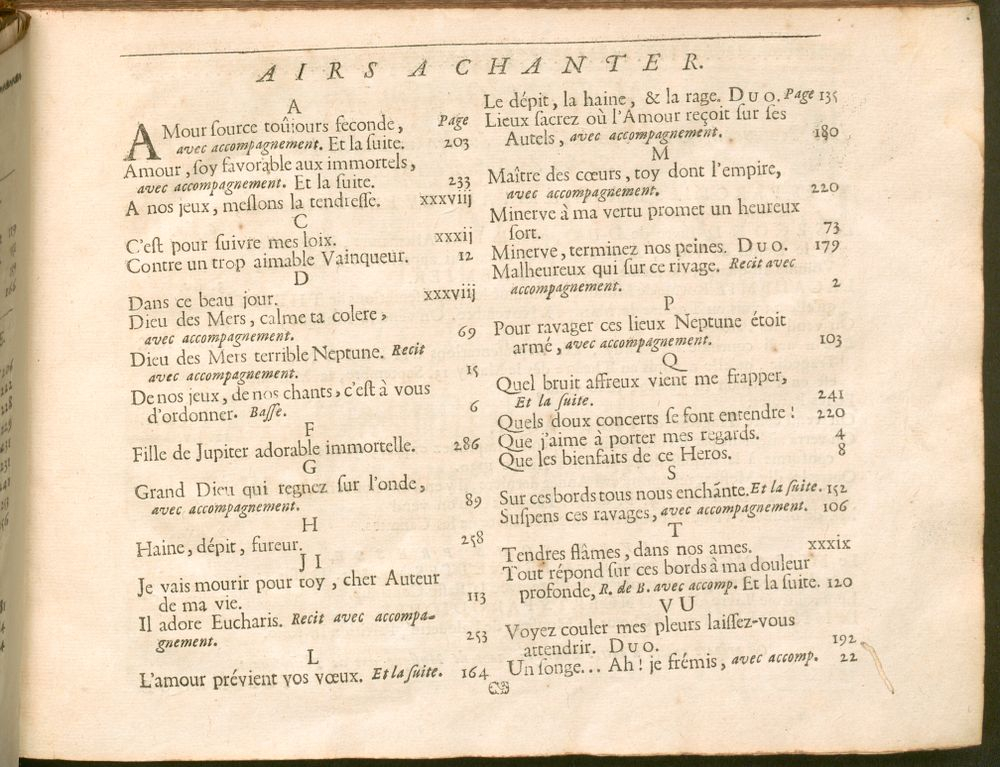 AIRS A CHANTER.
A
AMour source toûjours feconde, Page
avec accompagnement. Et la suite. 203
Amour, soy favorable aux immortels,
avec accompagnement. Et la suite. 233
A nos jeux, meslons la tendresse. xxxviij
C
C'est pour suivre mes loix. xxxij
Contre un trop aimable Vainqueur. 12
D
Dans ce beau jour. xxxviij
Dieu des Mers, calme ta colere,
avec accompagnement. 69
Dieu des Mers terrible Neptune. Recit
avec accompagnement. 15
De nos jeux, de nos chants, c'est à vous
d'ordonner. Basse. 6
F
Fille de Jupiter adorable immortelle. 286
G
Grand Dieu qui regnez sur l'onde,
avec accompagnement. 89
H
Haine, dépit, fureur. 258
J I
Je vais mourir pour toy, cher Auteur
de ma vie. 113
Il adore Eucharis. Recit avec accompa-
gnement. 253
L
L'amour prévient vos vœux. Et la suite. 164
Le dépit, la haine, & la rage. DUO. Page 135
Lieux sacrez où l'Amour reçoit sur ses
Autels, avec accompagnement. 180
M
Maître des cœurs, toy dont l'empire,
avec accompagnement. 220
Minerve à ma vertu promet un heureux
sort. 73
Minerve, terminez nos peines. DUO. 179
Malheureux qui sur ce rivage. Recit avec
accompagnement. 2
P
Pour ravager ces lieux Neptune étoit
armé, avec accompagnement. 103
Q
Quel bruit affreux vient me frapper,
Et la suite. 241
Quels doux concerts se font entendre! 220
Que j'aime à porter mes regards. 4
Que les bienfaits de ce Heros. 8
S
Sur ces bords tous nous enchãnte. Et la suite. 152
Suspens ces ravages, avec accompagnement. 106
T
Tendres flâmes, dans nos ames. xxxix
Tout répond sur ces bords à ma douleur
profonde, R. de B. avec accomp. Et la suite. 120
V U
Voyez couler mes pleurs laissez-vous
attendrir. DUO. 192
Un songe... Ah! je frémis, avec accomp. 22